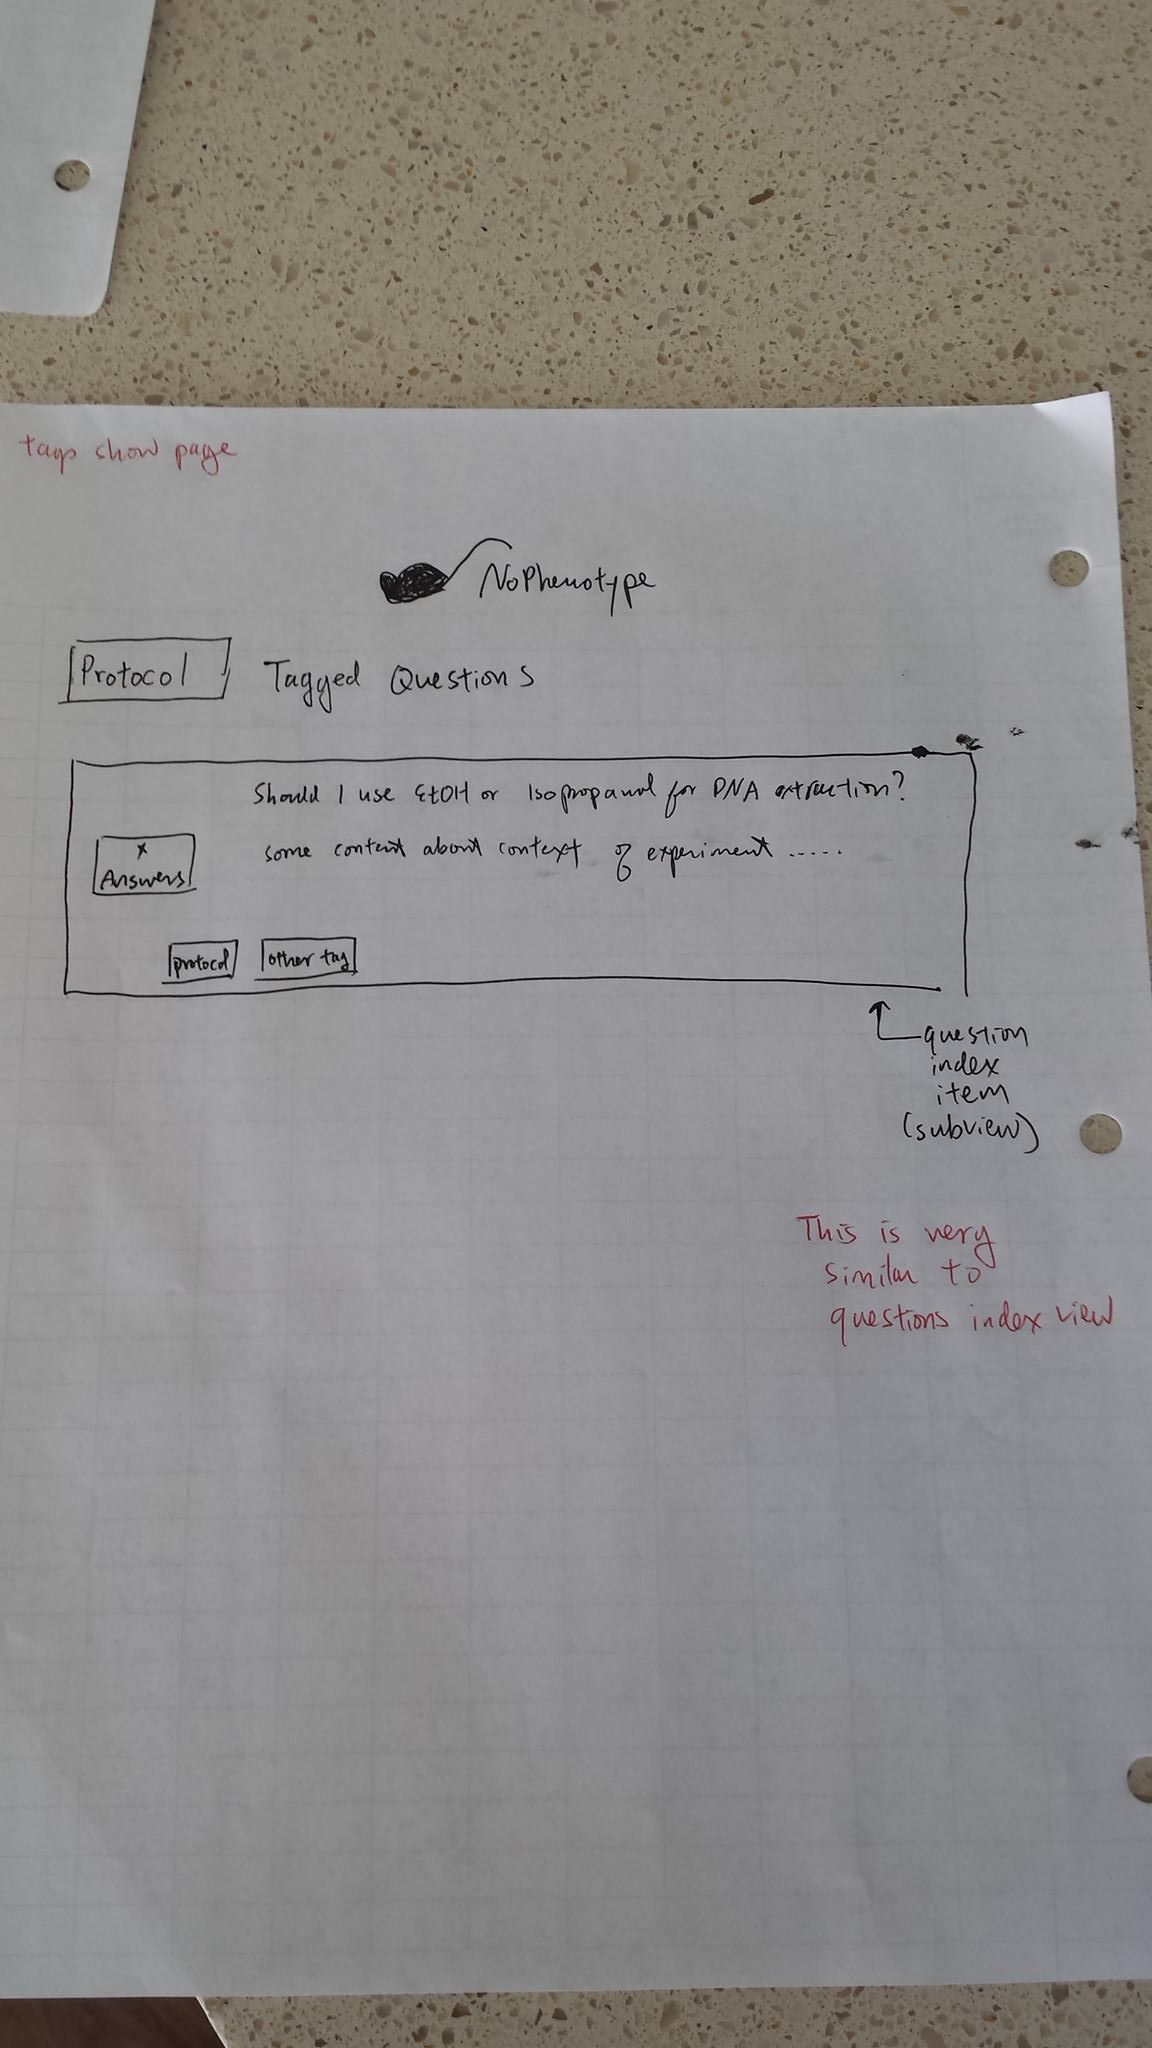 tags show page
NoPhenotype
Protocol Tagged Questions
Should I use EtOH or Isopropanol for DNA extraction?
some content about context of experiment .....
x
Answers
protocol other tag
question
index
item
(subview)
This is very
similar to
questions index view